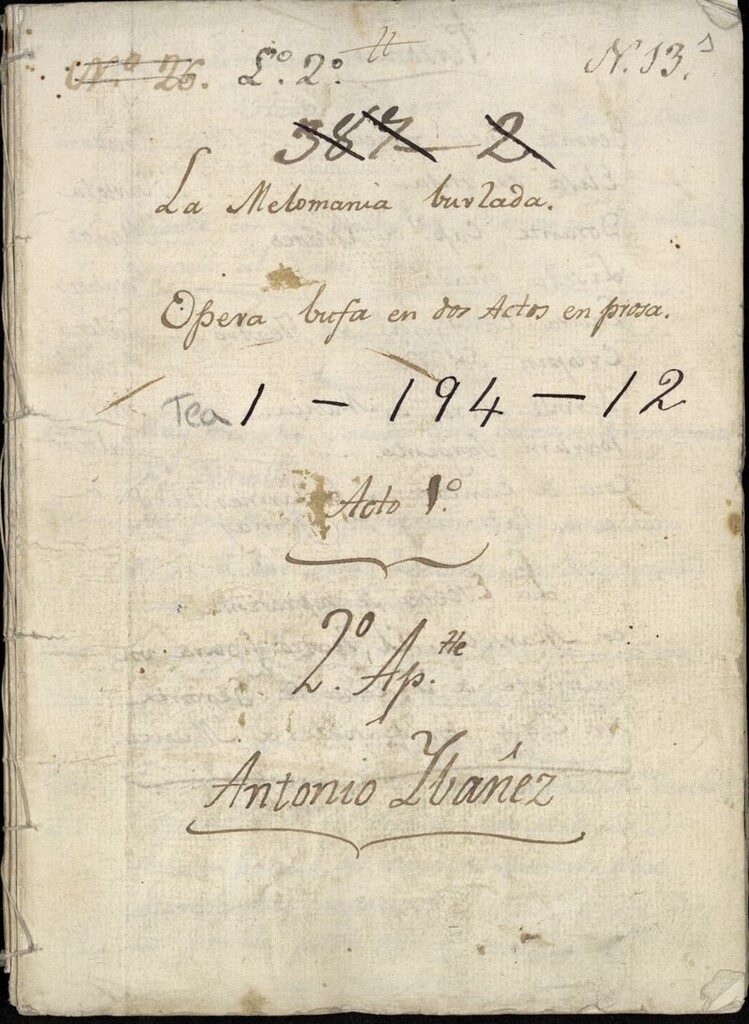 Nº 26. L.º 2.º N. 13.
387-2
La Melomania burlada.
Opera bufa en dos Actos en prosa.
Tea 1-194-12
Acto 1.º
2.º Ap.te
Antonio Ybáñez